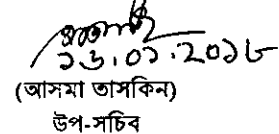 ১৬.০১.২০১৮
(আসমা তাসকিন)
উপ-সচিব